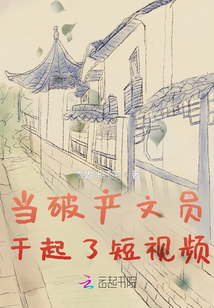 当破产文员
干起了短视频
云起书院